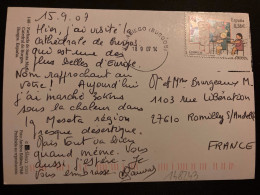 15.9.07
Hier, j'ai visité la
cathédrale de Burgos
qui est une des
plus belles d'Europe.
Nom rapprochant au
votre! Aujourd'hui
j'ai marché 30 kms
sous la chaleur dans
la Meseta région
presque désertique.
Mais tout va bien
quand même. Vous
aussi j'espère. Je
vous embrasse.
España
Mr et Mme Bourgeaux M.
1103 rue Libération
27610 Romilly s/Andelle
FRANCE